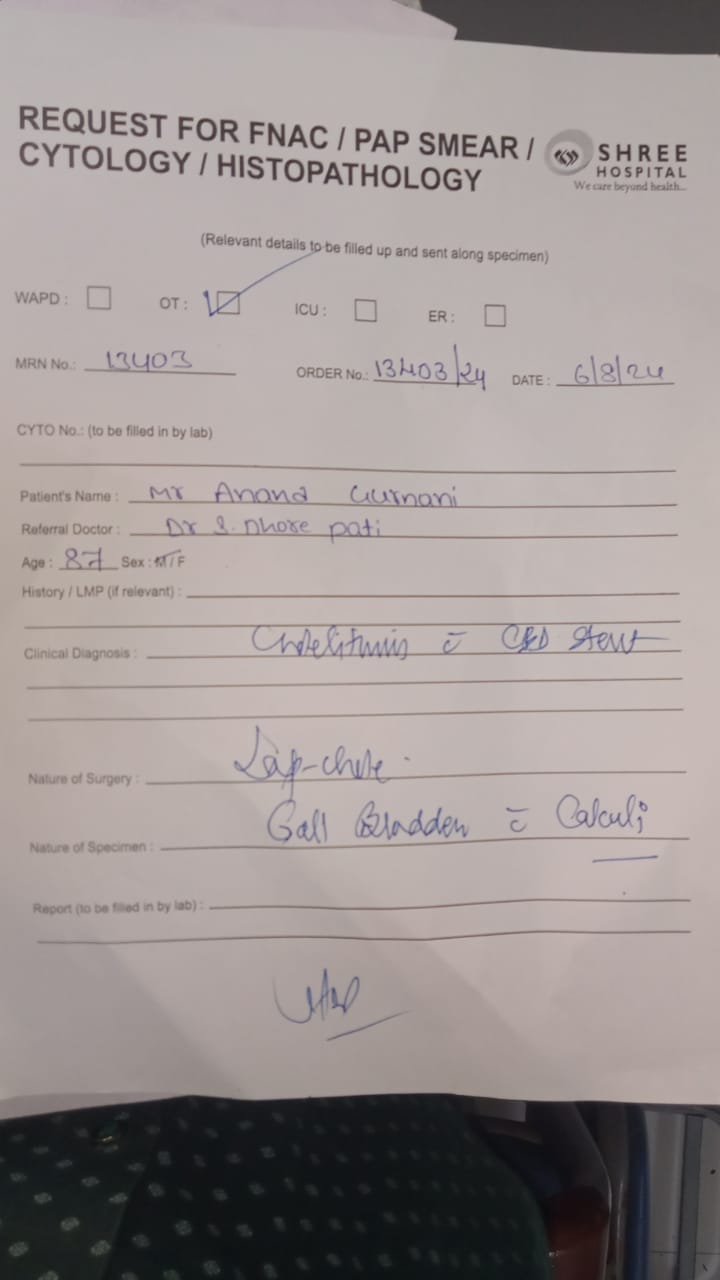 REQUEST FOR FNAC / PAP SMEAR /
CYTOLOGY / HISTOPATHOLOGY
SHREE
HOSPITAL
We care beyond health...
(Relevant details to be filled up and sent along specimen)
WAPD : OT : ICU : ER :
MRN No.: 13403 ORDER No.: 13403/24 DATE : 6/8/24
CYTO No.: (to be filled in by lab)
Patient's Name : Mr Anand Gurnani
Referral Doctor : Dr S. Dhore pati
Age : 87 Sex : M / F
History / LMP (if relevant) :
Clinical Diagnosis : CBD Stent
Nature of Surgery : Lap-chole
Nature of Specimen : Gall Bladder c̄ Calculi
Report (to be filled in by lab) :